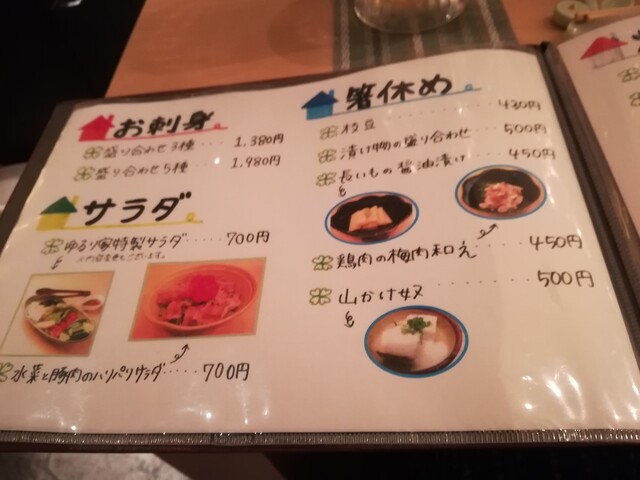 お刺身
盛り合わせ3種 ‥‥ 1.380円
盛り合わせ5種 ‥‥ 1.980円
サラダ
ゆるり家特製サラダ ‥‥‥ 700円
水菜と豚肉のハリハリサラダ ‥‥‥ 700円
箸休め
枝豆 ‥‥‥ 430円
漬け物の盛り合わせ ‥‥ 500円
長いもの醤油漬け ‥‥ 450円
鶏肉の梅肉和え ‥‥‥ 450円
山かけ奴 ‥‥‥ 500円